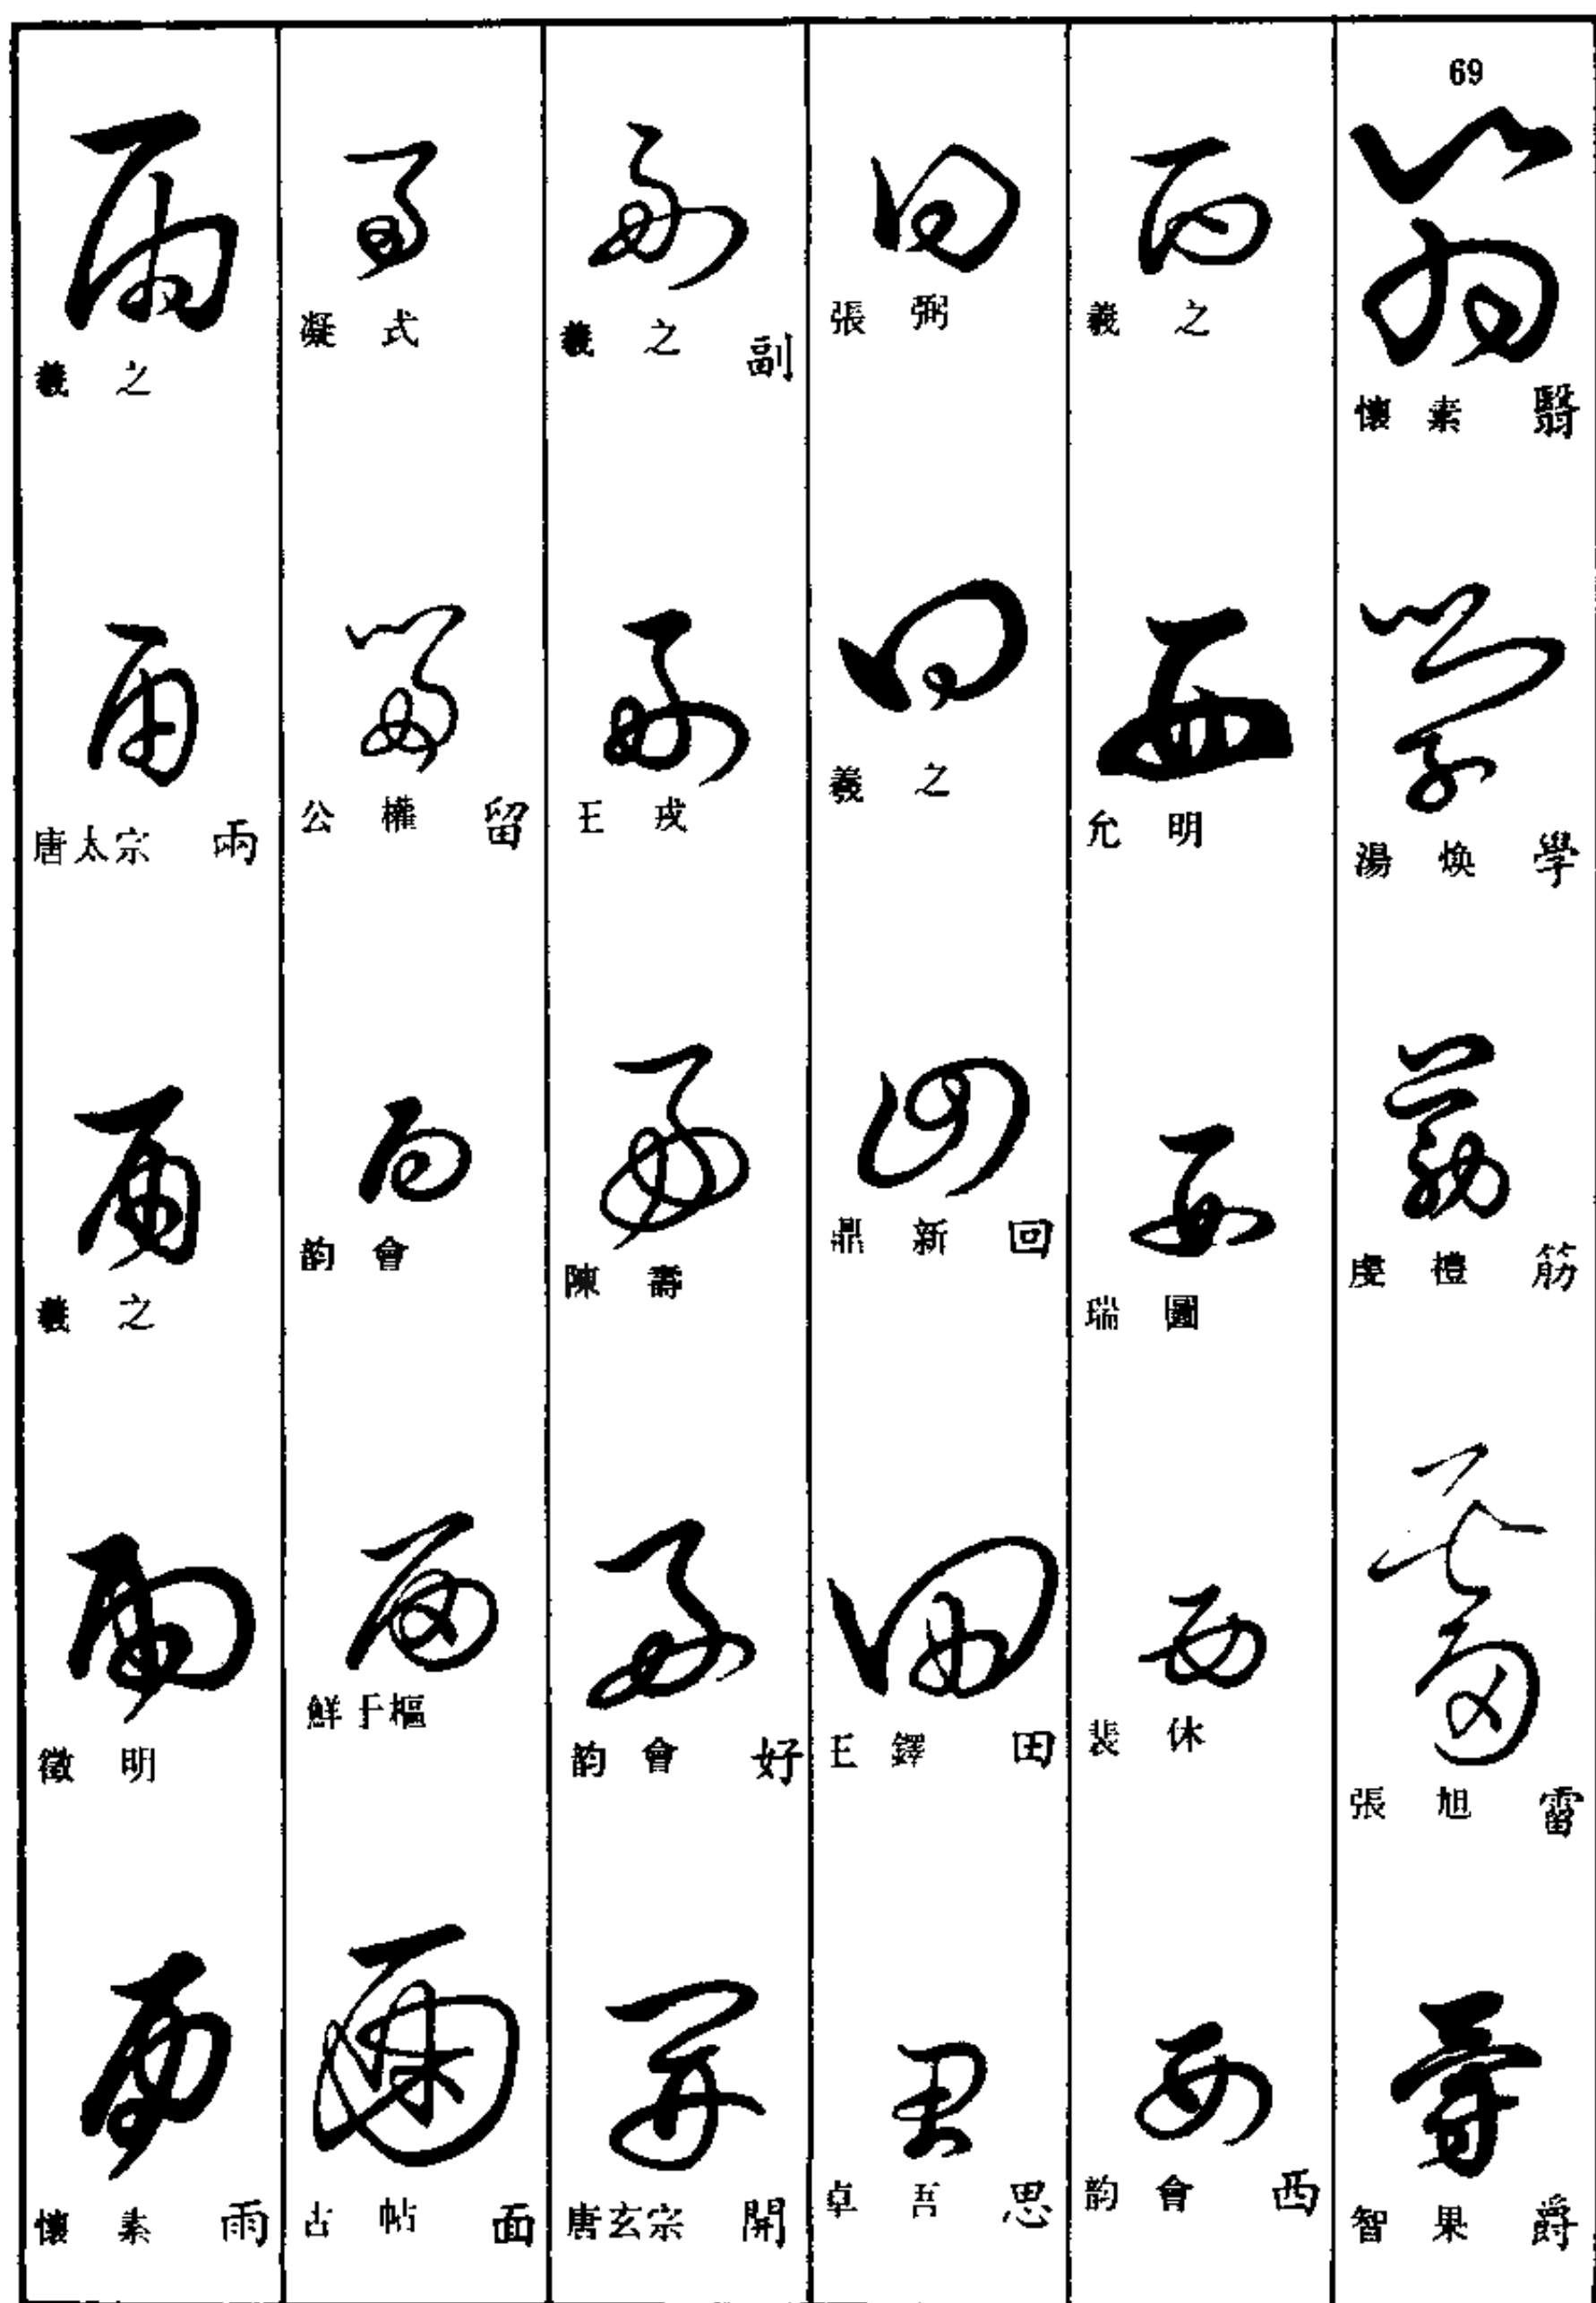 69
懷素 翳
湯煥 學
虞禮 筋
張旭 雷
智果 爵
羲之
允明
瑞圖
裴休
韵會 西
張弼
羲之
鼎新 回
王鐸 田
卓吾 思
羲之 副
王戎
陳壽
韵會 好
唐玄宗 開
凝式
公權 留
韵會
鮮于樞
古帖 面
羲之
唐太宗 兩
羲之
徵明
懷素 雨